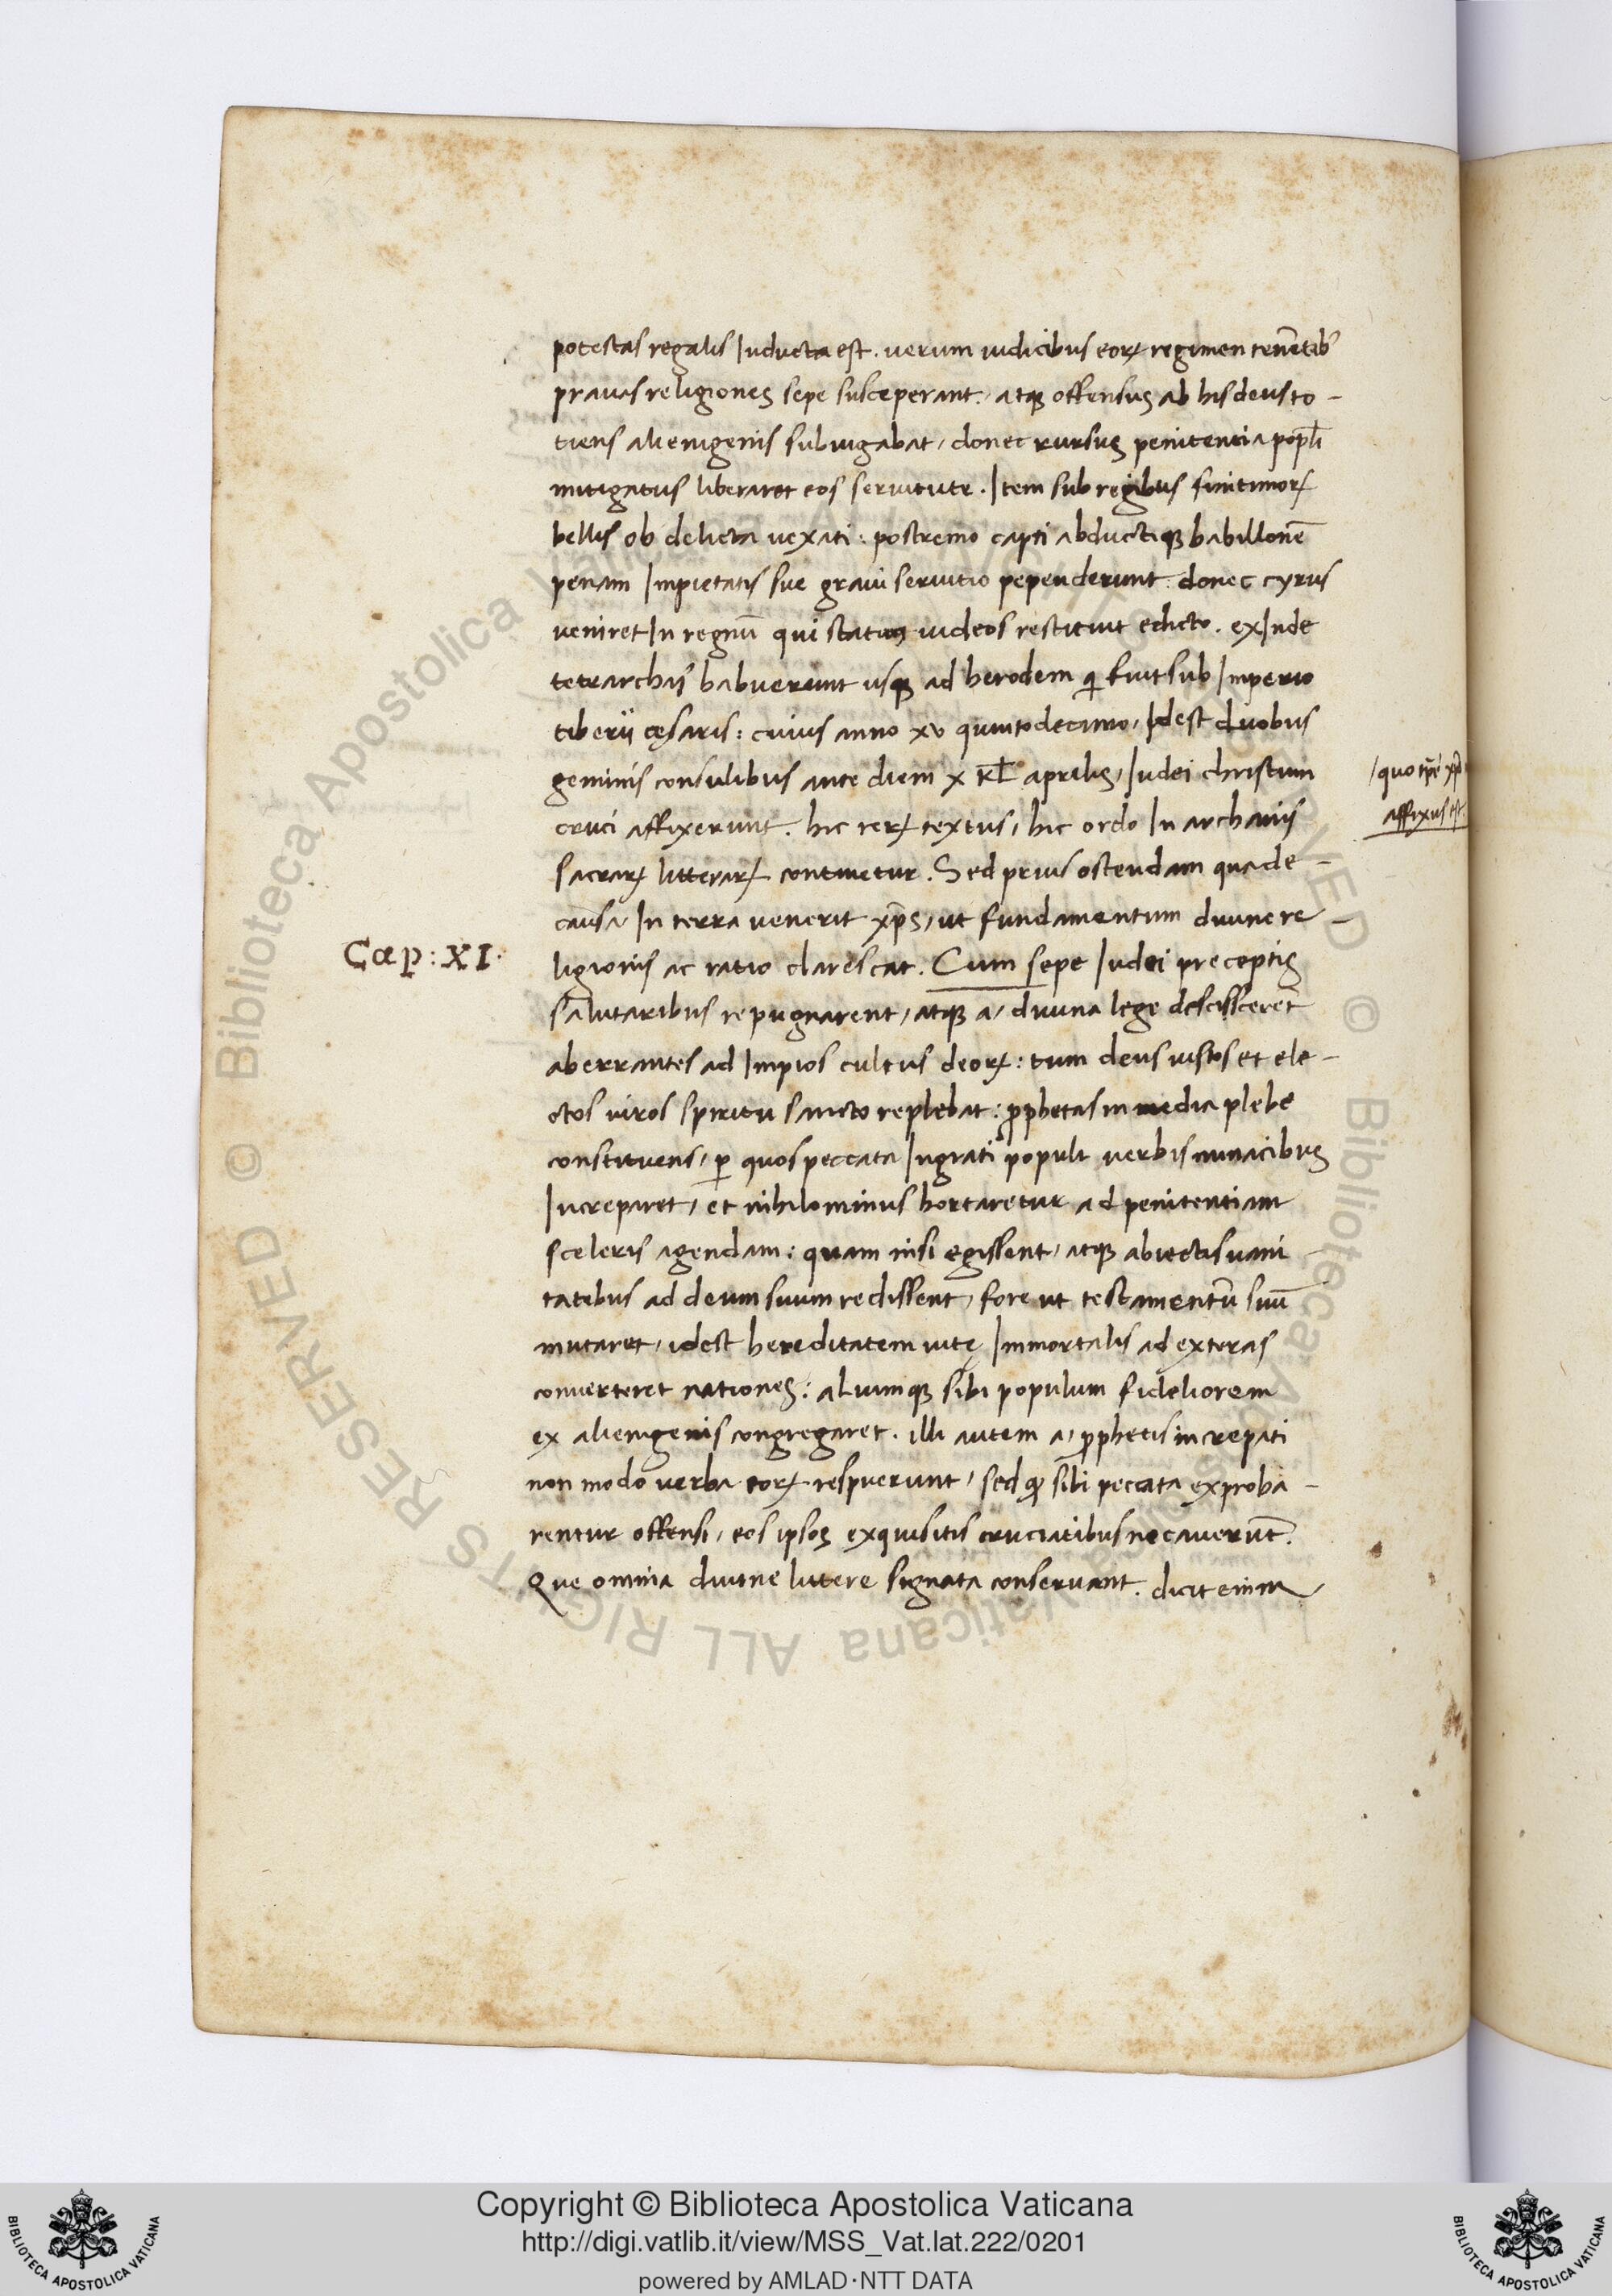 potestas regalis Inducta est. uerum iudicibus eoꝝ regimen tenẽtib᾽
prauas religiones sepe susceperant. atqꝫ offensus ab his deus to-
tiens alienigenis subiugabat, donec rursus penitentia pop̃li
mitigatus liberaret eos seruitute. Item sub regibus finitimoꝝ
bellis ob delicta uexati: postremo capti abductiqꝫ babillonẽ
penam Impietatis sue graui seruitio pependerunt: donec cyrus
ueniret In regnũ qui statim iudeos restituit edicto. exInde
tetrarchas habuerunt usqꝫ ad herodem q̣ fuit sub Imperio
tiberii cęsaris: cuius anno xv quintodecimo, Idest duobus
geminis consulibus ante diem x kł aprilis, Iudei christum
cruci affixerunt. hic reꝝ textus, hic ordo In archanis
sacraꝝ litteraꝝ continetur. Sed prius ostendam qua de-
causa, In terra uenerit xp̃s, ut fundamentum diuine re-
ligionis ac ratio clarescat. Cum sepe Iudei preceptis
salutaribus repugnarent, atqꝫ a, diuina lege desciscerẽt
aberrantes ad Impios cultus deoꝝ: tum deus iustos et ele-
ctos uiros spiritu sancto replebat: ꝓphetas in media plebe
constituens, ꝑ quos peccata Ingrati populi uerbis minacibus
Increparet, et nihilominus hortaretur ad penitentiam
sceleris agendam: quam nisi egissent, atqꝫ abiectis uani
tatibus ad deum suum redissent, fore ut testamentũ suũ
mutaret, idest hereditatem uitę Immortalis ad exteras
conuerteret nationes: aliumqꝫ sibi populum fideliorem
ex alienigenis congregaret. illi autem a, ꝓphetis increpati
non modo uerba eoꝝ respuerunt, sed qꝫ sibi peccata exproba-
rentur offensi, eos ipsos exquisitis cruciatibus necauerũt.
Que omnia diuine littere signata conseruant. dicit enim
Cap: XI.
quo tp̃e xp̃s
affixus est.
Copyright © Biblioteca Apostolica Vaticana
http://digi.vatlib.it/view/MSS_Vat.lat.222/0201
powered by AMLAD·NTT DATA
BIBLIOTECA APOSTOLICA VATICANA
BIBLIOTECA APOSTOLICA VATICANA
© Biblioteca Apostolica Vaticana ALL RIGHTS RESERVED